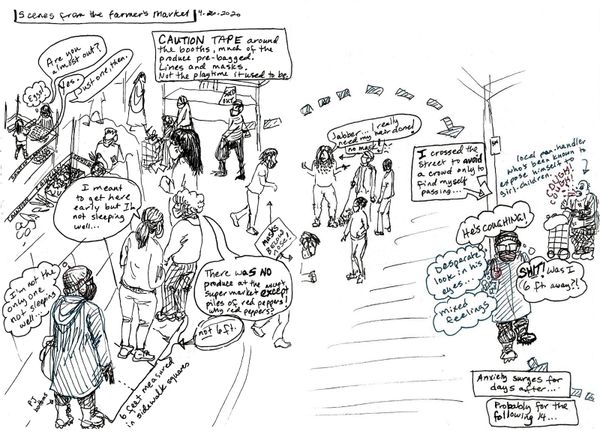 Scenes from the farmer's market
4.20.2020
Are you
almost out?
Yes.
Just one, then.
Eggs!
CAUTION TAPE around
the booths, much of the
produce pre-bagged.
Lines and masks.
Not the playtime it used to be.
SOLD
OUT
Jabber...I really
need my hair done!
no mask!
I crossed the
street to avoid
a crowd only to
find myself
passing...
local pan-handler
who's been known to
expose himself to
girl children.
COUGH!
COUGH!
I meant
to get here
early but I'm
not sleeping
well...
masks
below
nose!
There was NO
produce at the
supermarket EXCEPT
piles of red peppers!
Why red peppers?
not 6 ft.
I'm not the
only one
not sleeping
well...
PJ
bottoms
6 feet measured
in sidewalk squares
He's COUGHING!
Desperate
look in his
eyes...
mixed
feelings
SHIT! Was I
6 ft away?!
Anxiety surges for
days after...
Probably for the
following 14...